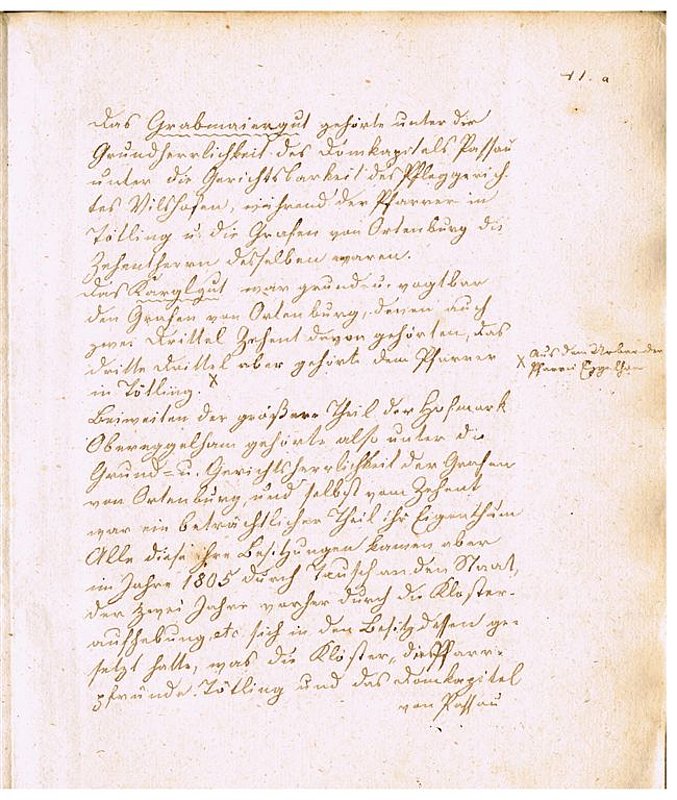 41. a
Das Grabmaiergut gehörte unter die
Grundherrlichkeit des Domkapitels Passau
unter die Gerichtsbarkeit des Pfleggerich-
tes Vilshofen, während der Pfarrer in
Tötling u. die Grafen von Ortenburg die
Zehentherrn desselben waren.
Das Karglgut war grund- u. vogtbar
den Grafen von Ortenburg, denen auch
zwei Drittel Zehent davon gehörten, das
dritte Drittel aber gehörte dem Pfarrer
in Tötling. x
x Aus dem Urbar der
Pfarrei Eggelham
Beiweiten der größere Theil der Hofmark
Obereggelham gehörte also unter die
Grund- u. Gerichtsherrlichkeit der Grafen
von Ortenburg, und selbst vom Zehent
war ein beträchtlicher Theil ihr Eigenthum
Alle diese ihre Besitzungen kamen aber
im Jahre 1805 durch Tausch an den Staat,
der zwei Jahre vorher durch die Kloster-
aufhebung etc. sich in den Besitz dessen ge-
setzt hatte, was die Klöster, die Pfarr-
pfründe Tötling und das Domkapitel
von Passau